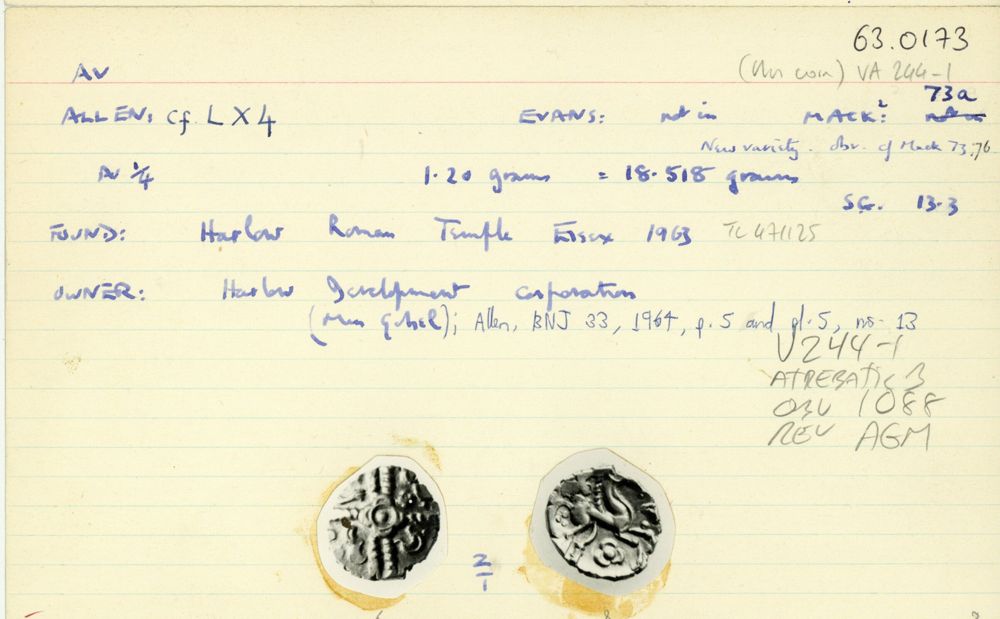 63.0173
AV (this coin) VA 244-1
ALLEN: cf LX4 EVANS: not in MACK:² 73a not in
New variety. obv. cf Mack 73, 76
AV ¼ 1.20 grams = 18.518 grains
S.G. 13.3
FOUND: Harlow Roman Temple Essex 1963 TL 471125
OWNER: Harlow Development Corporation
(Miss ); Allen, BNJ 33, 1964, p. 5 and pl. 5, no. 13
V244-1
ATREBATIC B
OBV 1088
REV AGM
2
1